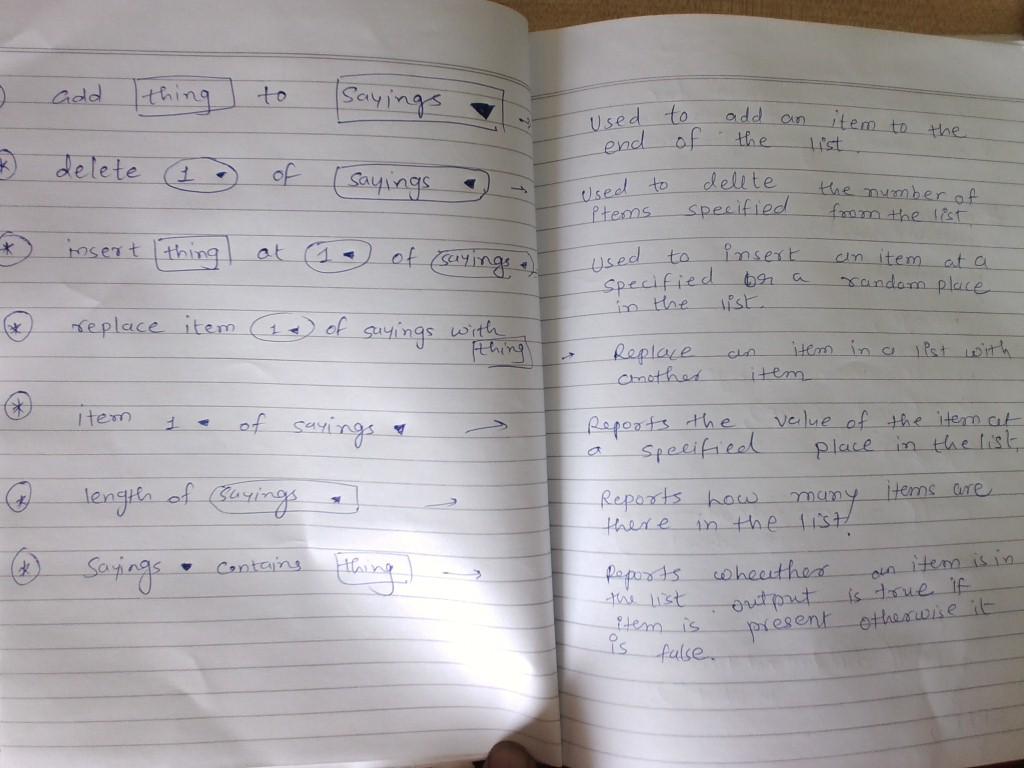 add thing to Sayings ▼ →
Used to add an item to the
end of the list.
* delete 1 of sayings →
Used to delete the number of
items specified from the list
* insert thing at 1 of sayings
Used to insert an item at a
specified or a random place
in the list.
* replace item 1 of sayings with
thing →
Replace an item in a list with
another item
* item 1 of sayings →
Reports the value of the item at
a specified place in the list.
* length of sayings →
Reports how many items are
there in the list.
* Sayings contains thing →
Reports wheather an item is in
the list. output is true if
item is present otherwise it
is false.